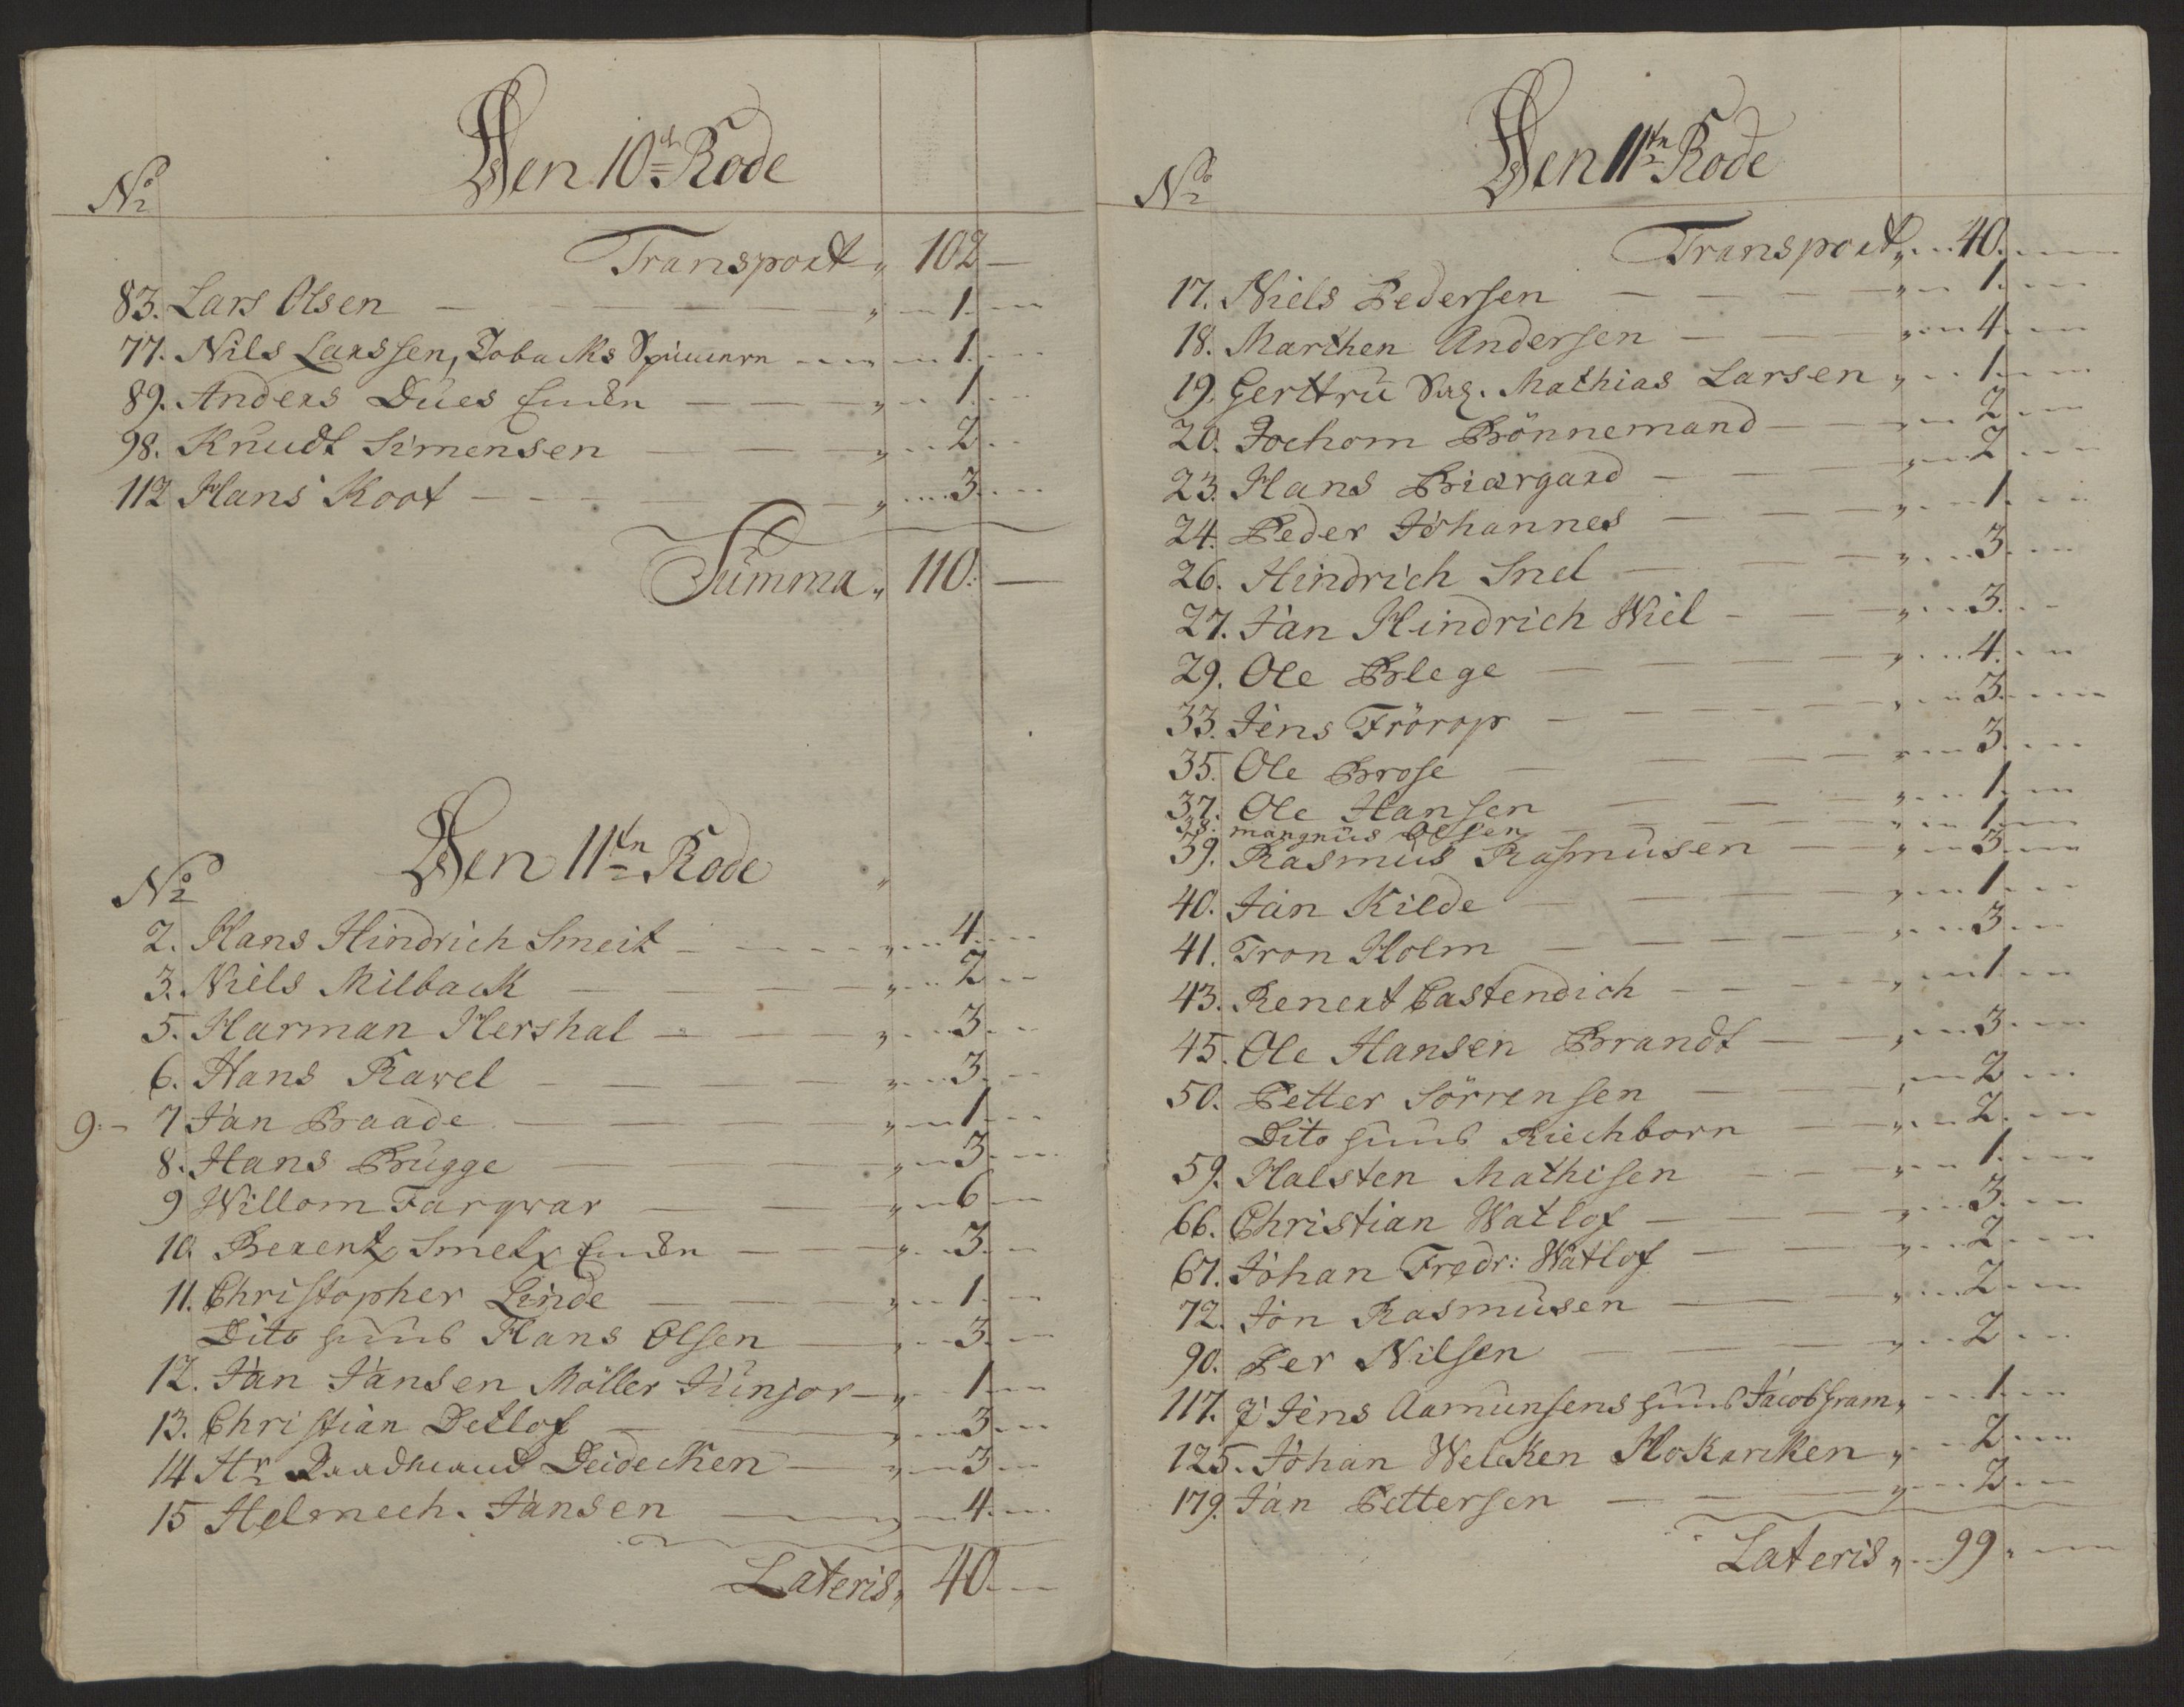 Den 10de Rode
No
Transport „ 102 —
83. Lars Olsen — „ 1
77. Nils Larssen, Tobacks Spinnern „ 1
89. Anders Dues Encken — „ 1
98. Knudt Simensen — „ 2
112 Hans Koot — „ 3
Summa „ 110. —
Den 11ten Rode
No
2. Hans Hindrich Smeit — „ 4
3. Niels Milback — „ 2
5. Harman Hershal — „ 3
6. Hans Ravel — „ 3
9. – 7 Jan Braade — „ 1
8. Hans Brügge — „ 3
9 Willom Farqvar — „ 6
10. Berent Smelx Encken — „ 3
11. Christopher Linde — „ 1
Dito huus Hans Olsen — „ 3
12. Jan Jansen Möller Junjor — „ 1
13. Christian Detlof — „ 3
14 Hr Raadmand Deidecken — „ 3
15 Helmech. Jansen — „ 4
Lateris „ 40
Den 11ten Rode
No
Transport „ 40
17. Niels Pedersen — „ 1
18. Marthen Andersen — „ 4
19. Gerttru Sal. Mathias Larsen „ 1
20. Jochom Brönnemand — „ 2
23. Hans Biærgard — „ 2
24. Peder Johannes — „ 1
26. Hindrich Snel — „ 3
27. Jan Hindrich Wiel — „ 3
29. Ole Blege — „ 4
33. Jens Frörop — „ 3
35. Ole Brose — „ 3
37. Ole Hansen — „ 1
38. mangnus Olsen — „ 1
39. Rasmus Rasmusen — „ 3
40. Jan Kilde — „ 1
41. Tron Holm — „ 3
43. Renert Castendich — „ 1
45. Ole Hansen Brandt — „ 3
50. Petter Sörrensen — „ 2
Dito huus Riechborn — „ 2
59. Halsten Mathisen — „ 1
66. Christian Watlof — „ 3
67. Johan Fredr: Watlof — „ 2
72. Jon Rasmusen — „ 2
90. Per Nilsen — „ 2
117. I Jens Aamunsens huus Jacob Gram „ 1
125. Johan Welcken Hokanken „ 2
179. Jan Pettersen — „ 2
Lateris „ 99